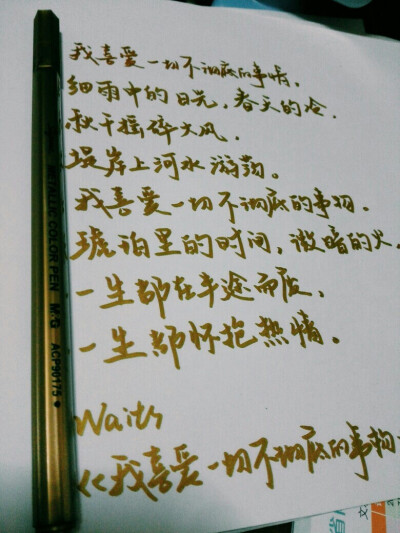 我喜爱一切不彻底的事情.
细雨中的日光,春天的冷.
秋千摇碎大风.
堤岸上河水游荡。
我喜爱一切不彻底的事物.
琥珀里的时间,微暗的火.
一生都在半途而废,
一生都怀抱热情。
《我喜爱一切不彻底的事物
METALLIC COLOR PEN M&G ACP90175